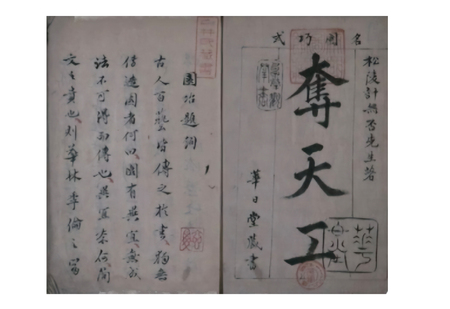 名園巧式
松陵計無否先生著
奪天工
華日堂藏書
園冶題詞
古人百藝皆傳之於書獨無
傳造園者何曰園有異宜無成
法不可得而傳也異宜奈何簡
文之貴也則華林季倫之富